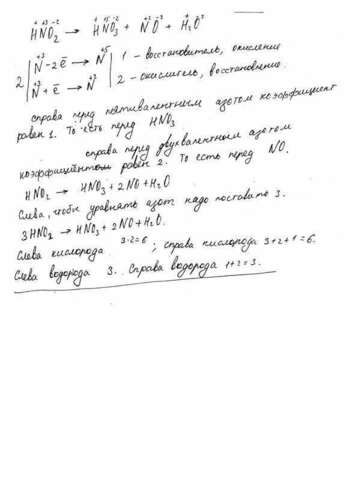 + +3 -2 + +5 -2 +2 -2 + -2
HNO₂ → HNO₃ + NO + H₂O
+3 +5
N - 2ē → N | 1 - восстановитель, окисление
2 | +3 +2
N + ē → N | 2 - окислитель, восстановление.
справа перед пятивалентным азотом коэффициент
равен 1. То есть перед HNO₃
справа перед двухвалентным азотом
коэффициентом равен 2. То есть перед NO.
HNO₂ → HNO₃ + 2NO + H₂O
Слева, чтобы уравнять азот надо поставить 3.
3HNO₂ → HNO₃ + 2NO + H₂O.
Слева кислорода 3·2=6 ; справа кислорода 3+2+1=6.
Слева водорода 3. Справа водорода 1+2=3.